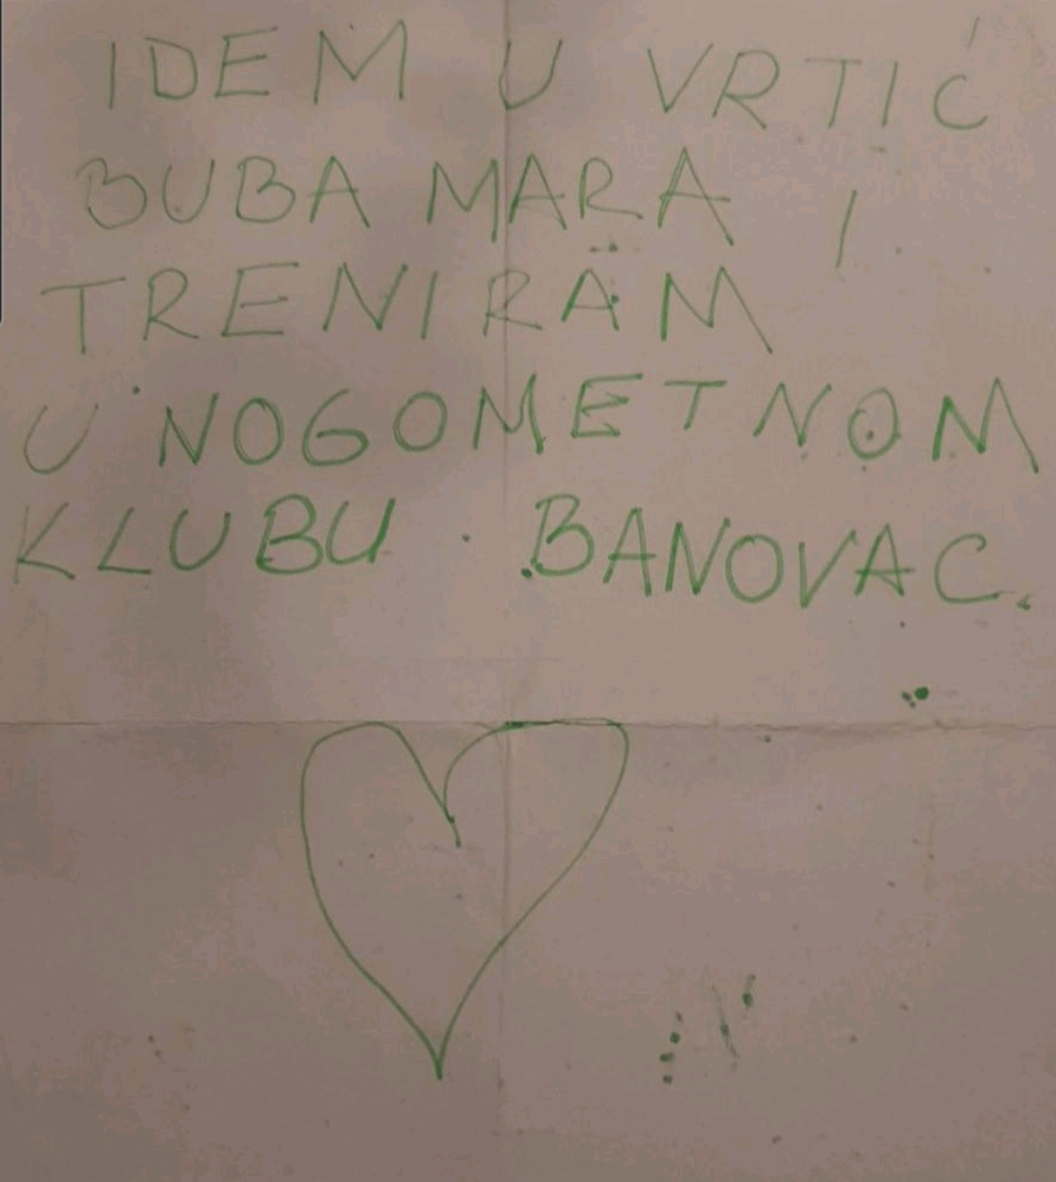 IDEM U VRTIĆ
BUBA MARA I
TRENIRAM
U NOGOMETNOM
KLUBU BANOVAC.